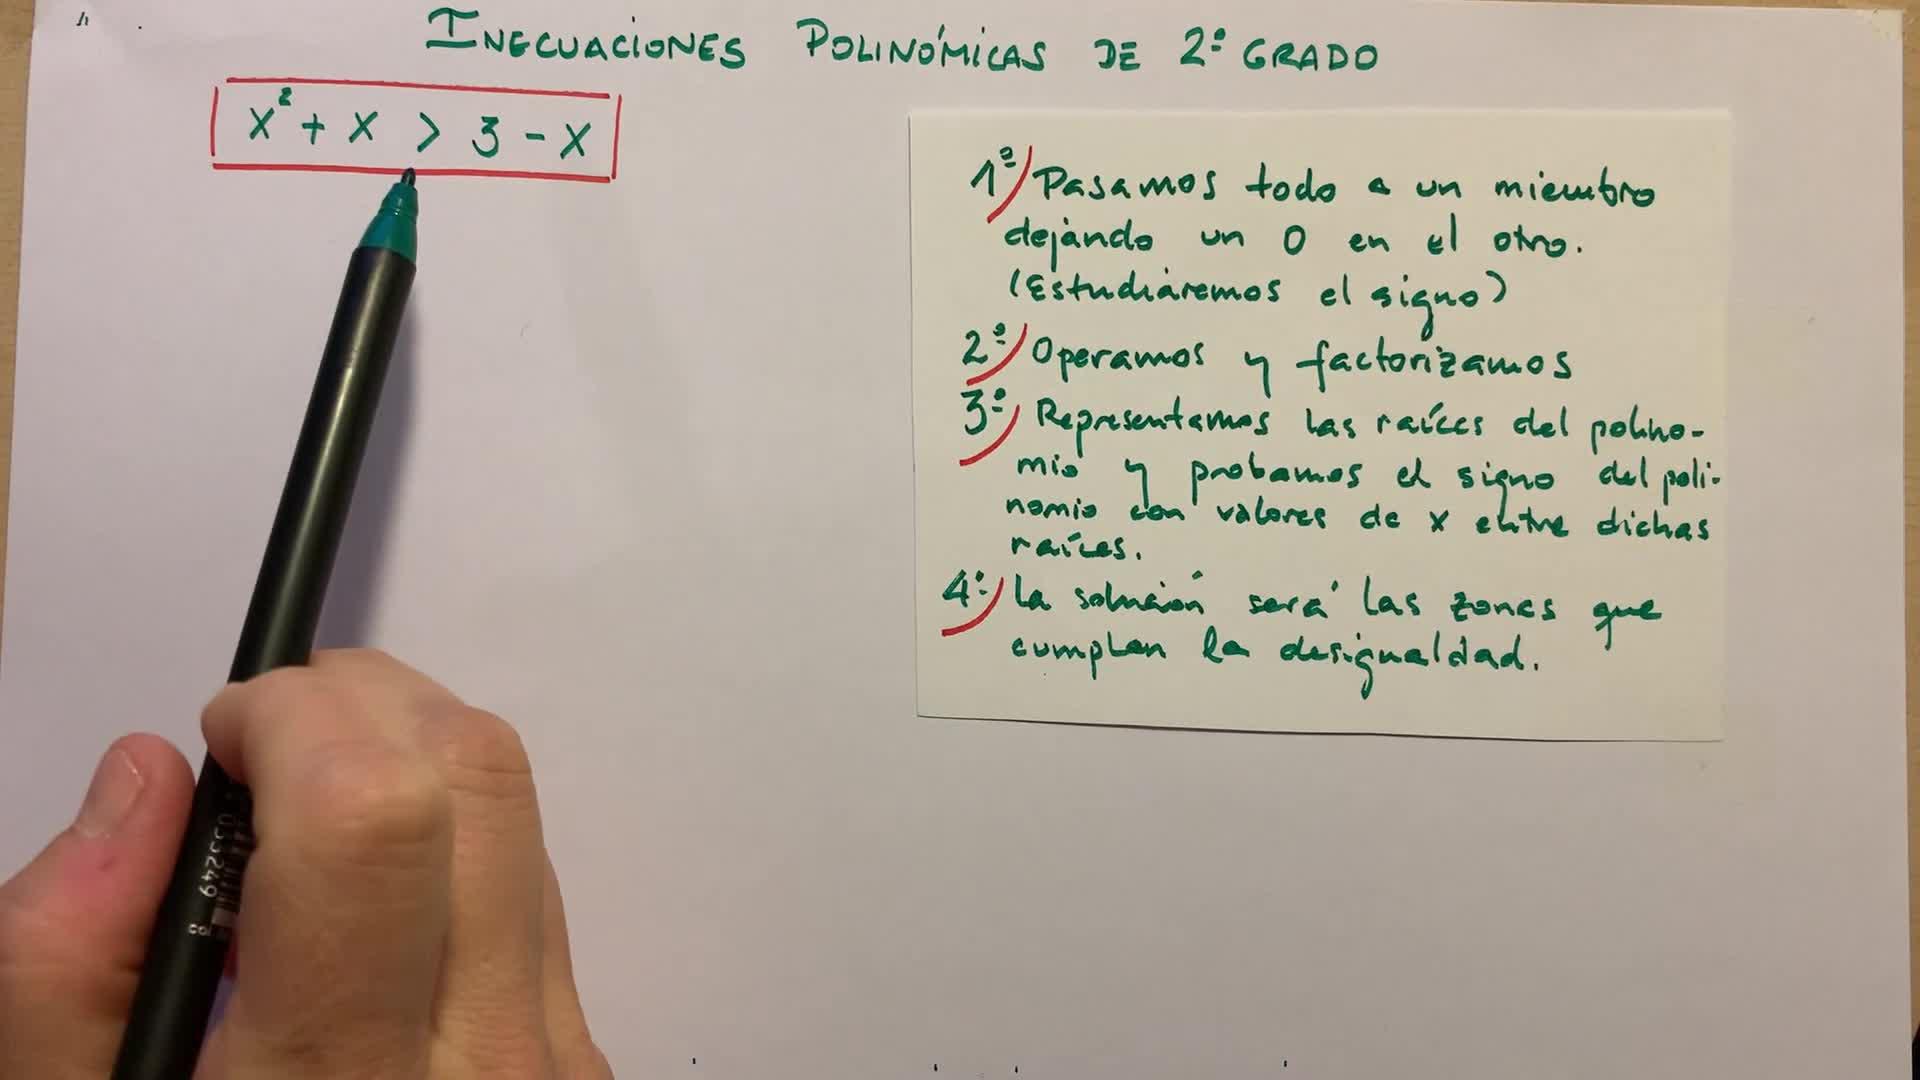 INECUACIONES POLINÓMICAS DE 2º GRADO
x² + x > 3 - x
1º) Pasamos todo a un miembro
dejando un 0 en el otro.
(Estudiaremos el signo)
2º) Operamos y factorizamos
3º) Representamos las raíces del polino-
mio y probamos el signo del poli-
nomio con valores de x entre dichas
raíces.
4º) La solución será las zonas que
cumplan la desigualdad.
033249